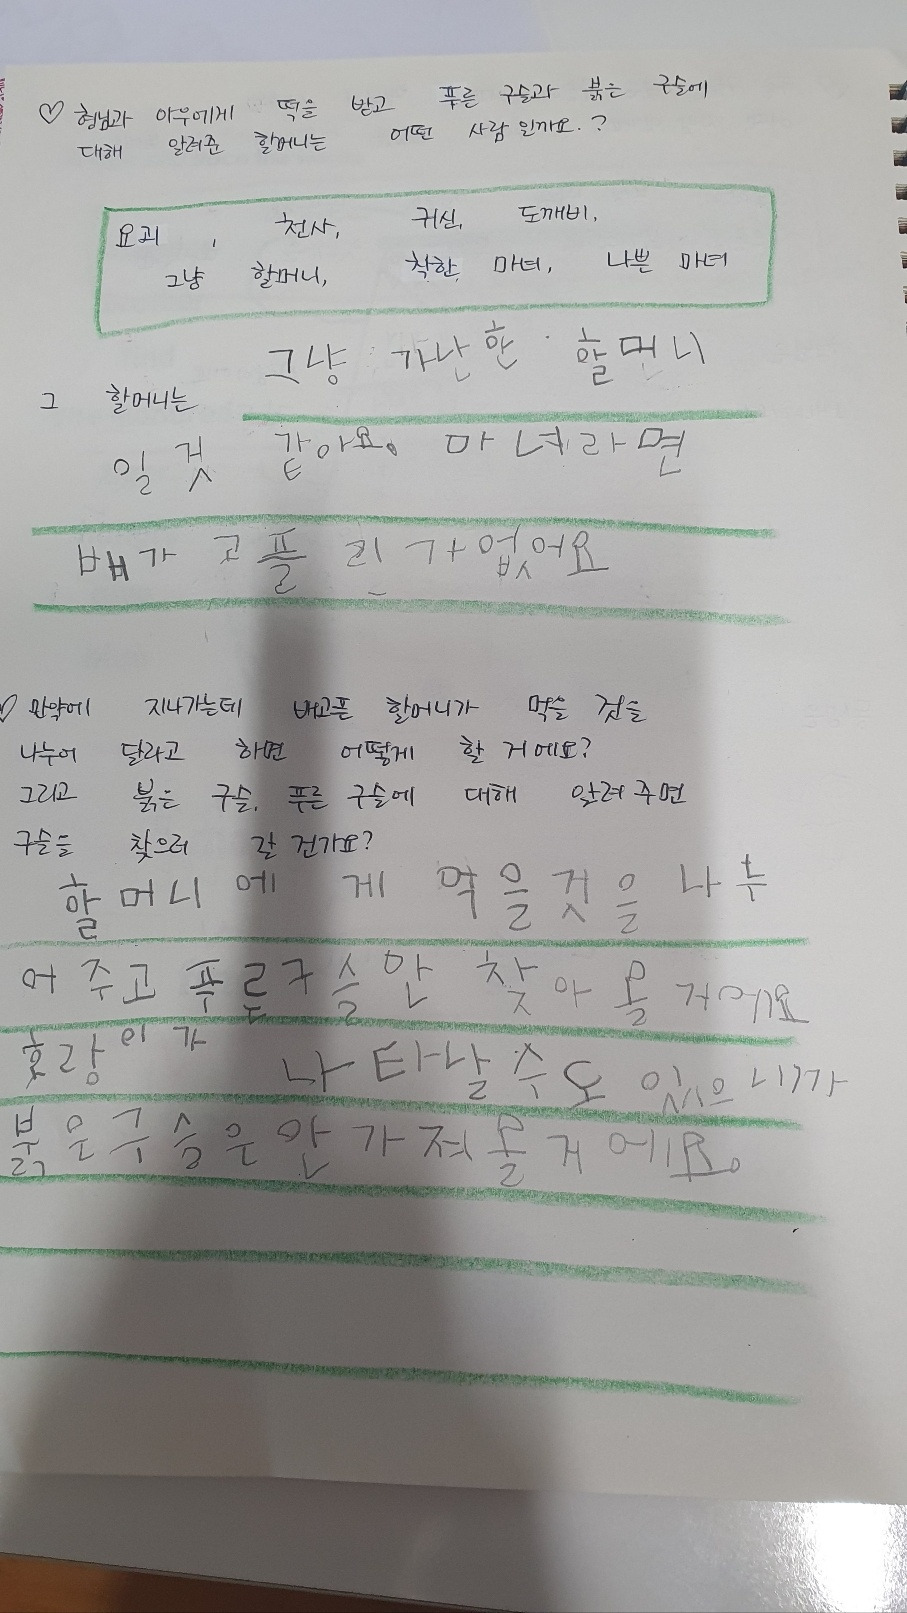 ♡ 형님과 아우에게 떡을 받고 푸른 구슬과 붉은 구슬에
대해 알려준 할머니는 어떤 사람인까요.?
요괴, 천사, 귀신, 도깨비,
그냥 할머니, 착한 마녀, 나쁜 마녀
그냥 가난한 할먼니
그 할머니는
일 것 같아요. 마녀라면
배가 고플 리가없어요
♡ 만약에 지나가는데 배고픈 할머니가 먹을 것을
나누어 달라고 하면 어떻게 할 거에요?
그리고 붉은 구슬, 푸른 구슬에 대해 알려주면
구슬들 찾으러 갈 건가요?
할머니에게 먹을것을 나누
어 주고 푸른구슬만 찾아 올 거에요
호랑이가 나타날수도 있으니까
붉은구슬은 안가져올게에요.